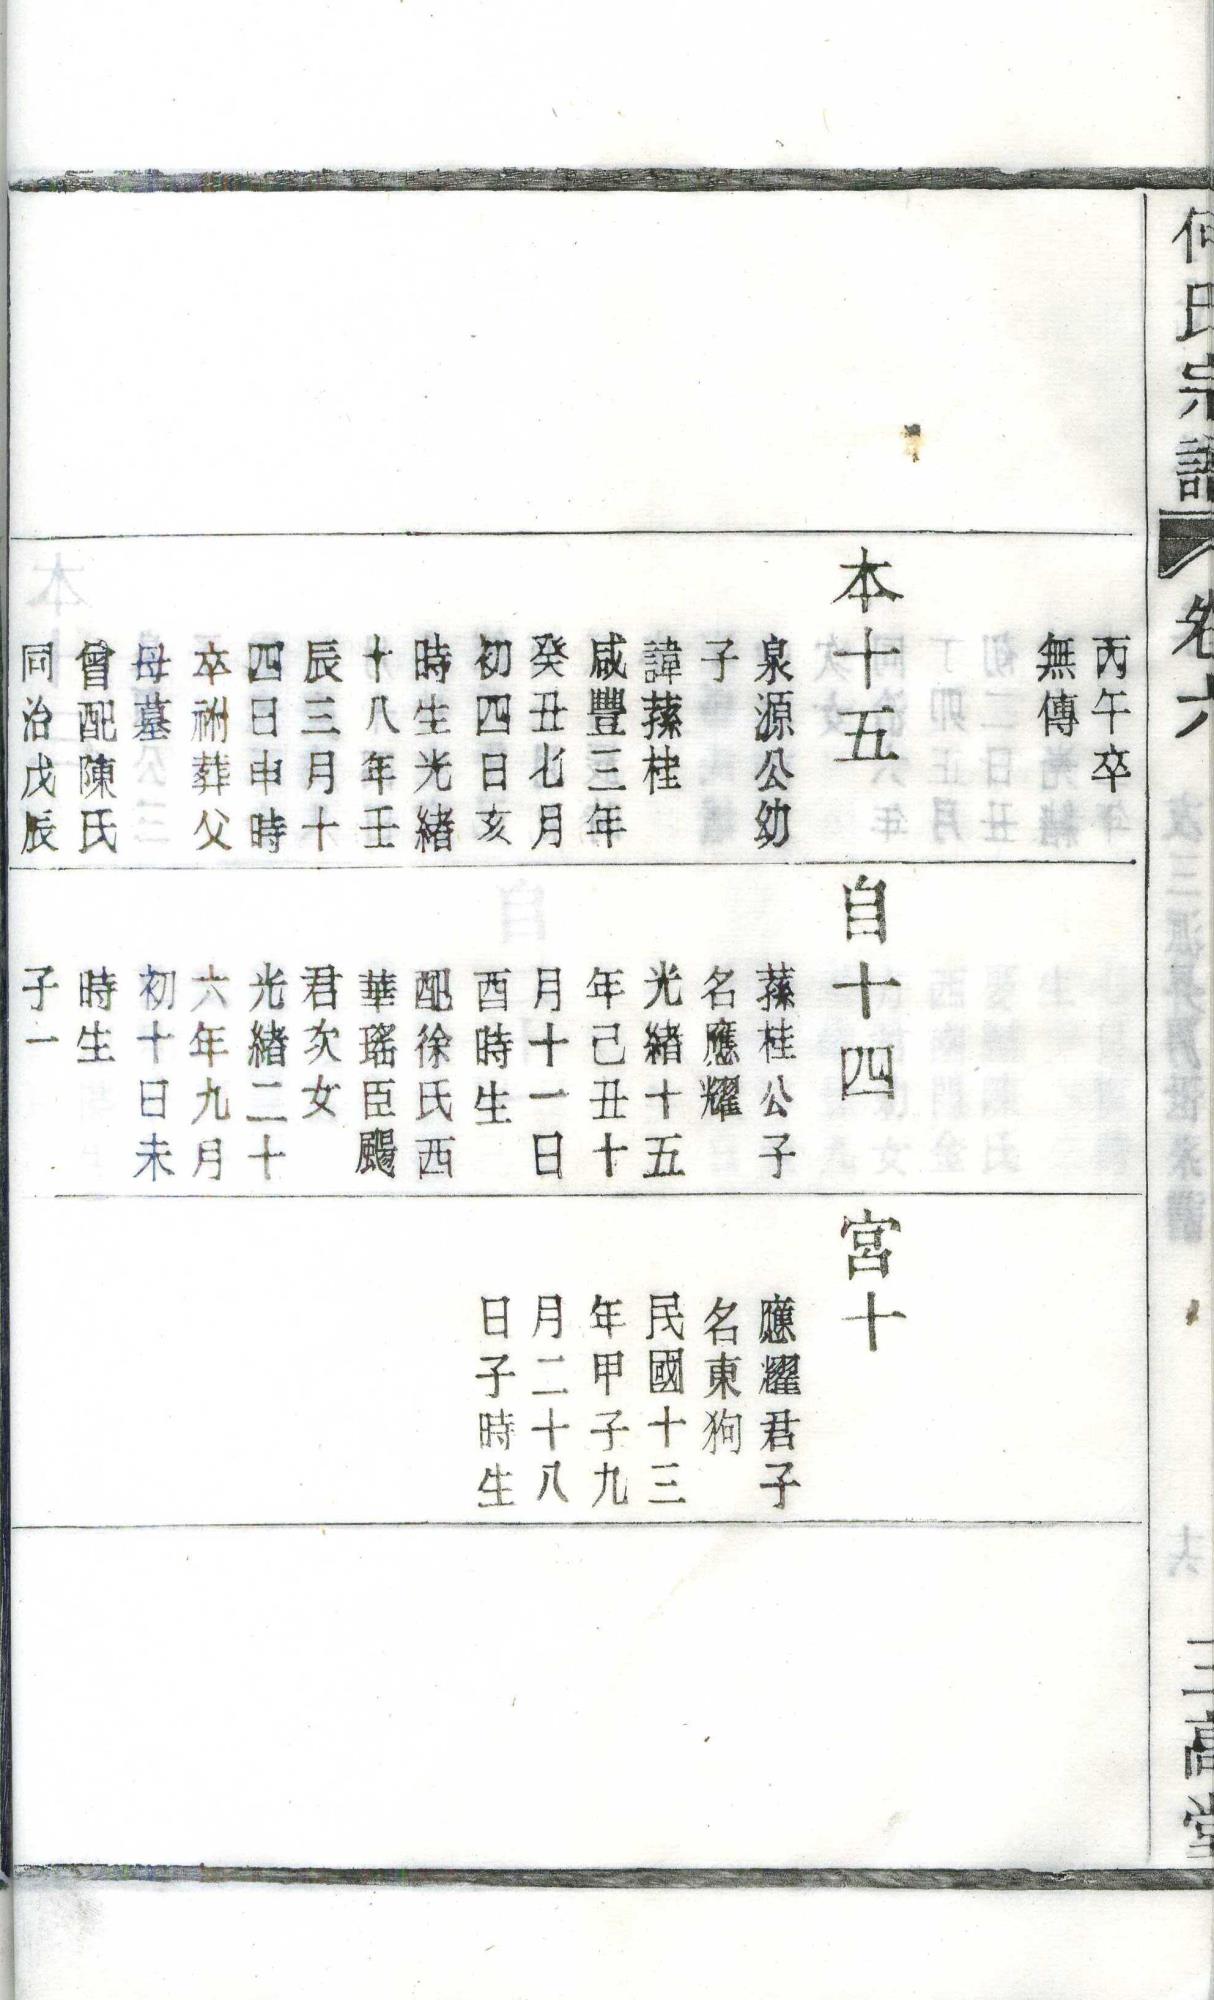 何氏宗譜
卷六
三高堂
丙午卒
無傳
本十五
泉源公幼
子
諱蓀桂
咸豐三年
癸丑七月
初四日亥
時生光緒
十八年壬
辰三月十
四日申時
卒祔葬父
母墓
曾配陳氏
同治戊辰
自十四
蓀桂公子
名應耀
光緒十五
年己丑十
月十一日
酉時生
配徐氏西
華瑤臣颺
君次女
光緒二十
六年九月
初十日未
時生
子一
宮十
應耀君子
名東狗
民國十三
年甲子九
月二十八
日子時生